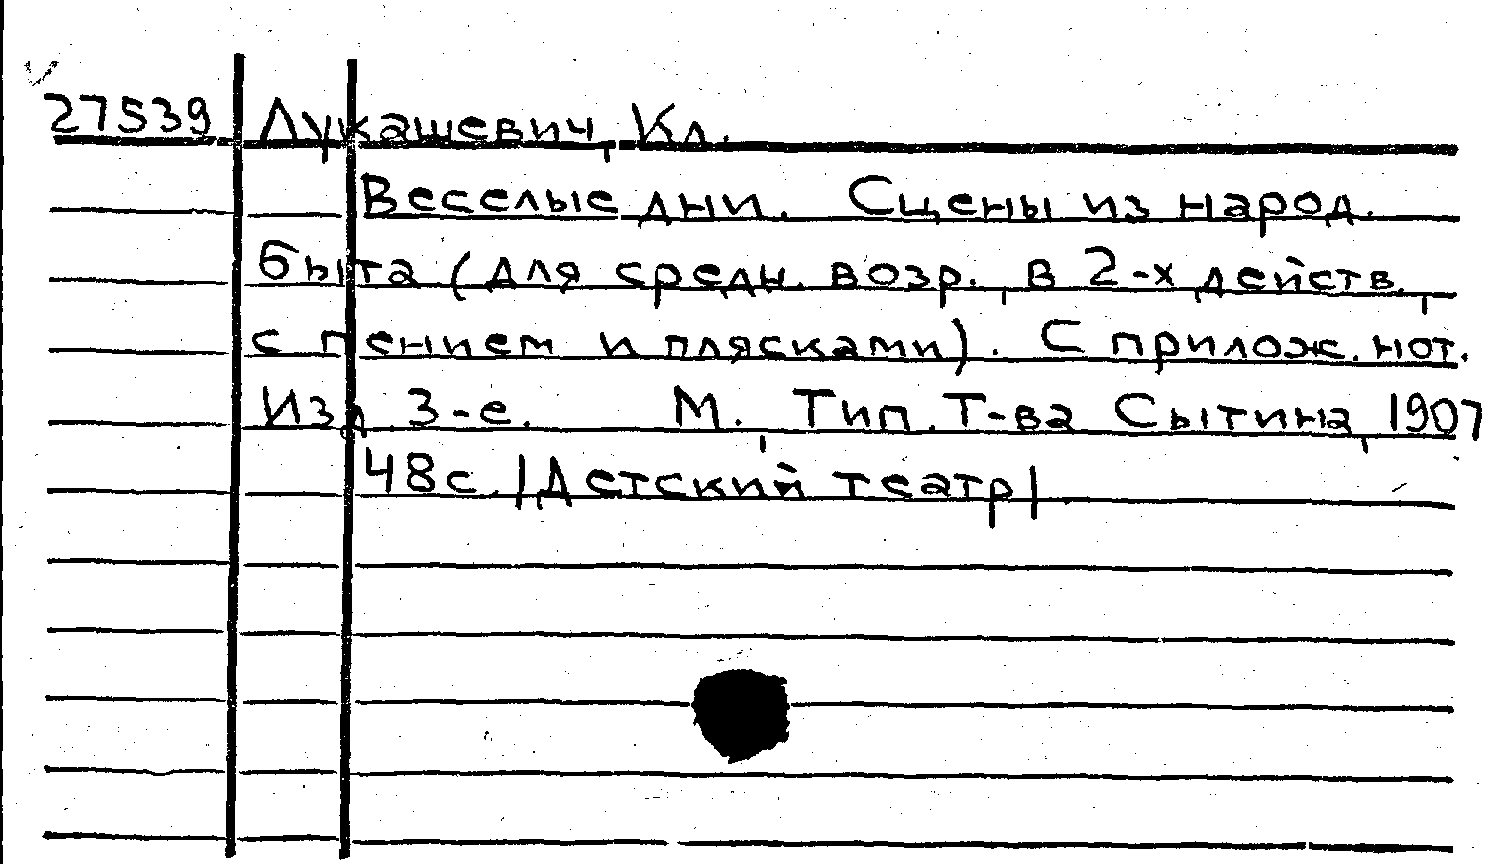 27539 Лукашевич, Кл.
Веселые дни. Сцены из народ.
быта (для средн. возр., в 2-х действ.,
с пением и плясками). С прилож. нот.
Изд. 3-е. М., Тип. Т-ва Сытина, 1907
48с. |Детский театр|